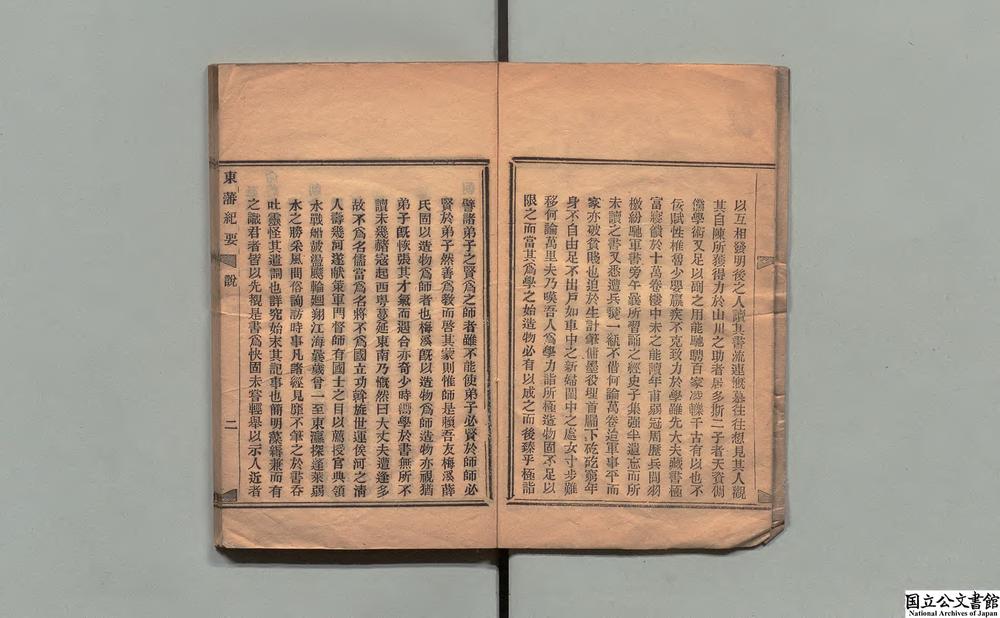 以互相發明後之人讀其書流連慨慕往往想見其人觀
其自陳所獲得力於山川之助者居多斯二子者天資倜
儻學術又足以副之用能馳騁百家凌轢千古有以也不
佞賦性椎魯少嬰羸疾不克致力於學雖先大夫藏書極
富寢饋於十萬卷樓中未之能讀年甫弱冠周歷兵間羽
檄紛馳軍書旁午曩所習誦之經史子集強半遺忘而所
未讀之書又悉遭兵燹一瓻不借何論萬卷迨軍事平而
家亦破貧賤也迫於生計筆傭墨役埋首牖下矻矻窮年
身不自由足不出戶如車中之新婦閨中之處女寸步難
移何論萬里夫乃嘆吾人為學力詣所極造物固不足以
限之而當其為學之始造物必有以成之而後臻乎極詣
譬諸弟子之賢為之師者雖不能使弟子必賢於師師必
賢於弟子然善為教而啓其蒙則惟師是賴吾友梅溪薛
氏固以造物為師者也梅溪既以造物為師造物亦視猶
弟子既恢張其才氣而遇合亦奇少時嗜學於書無所不
讀未幾赭寇起西粵蔓延東南乃慨然曰大丈夫遭逢多
故不為名儒當為名將不為國立功斡旋世運俟河之清
人壽幾何遂献策軍門督師有國士之目以薦授官典領
水戰船皷盪飈輪廻翔江海曩歲曾一至東瀛探蓬萊弱
水之勝采風問俗詢訪時事凡諸經見靡不筆之於書吞
吐靈怪其造詞也詳究始末其記事也簡明藻繢兼而有
之識君者皆以先覩是書為快固未嘗輕舉以示人近者
東藩紀要
說
二
国立公文書館
National Archives of Japan